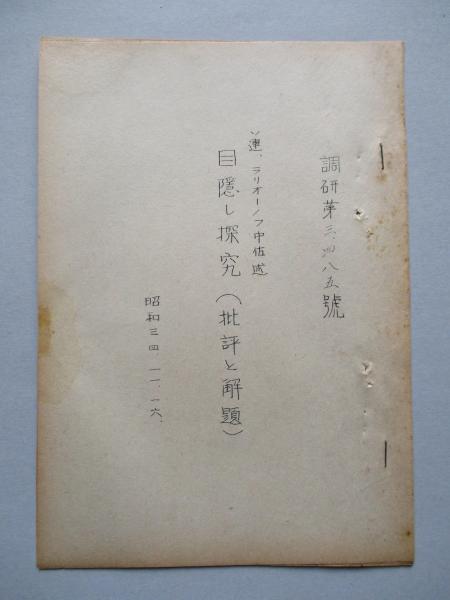 調研第三、四八五號
ソ連、ラリオーノフ中佐述
目隱し探究（批評と解題）
昭和三四 一一、一六、